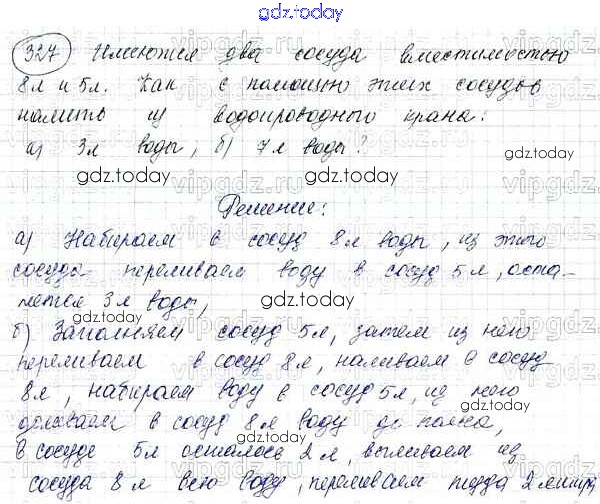 gdz.today
327 Имеются два сосуда вместимостью
8л и 5л. Как с помощью этих сосудов
налить из водопроводного крана:
а) 3л воды, б) 7л воды?
gdz.today gdz.today
Решение:
а) Набираем в сосуд 8л воды, из этого
сосуда переливаем воду в сосуд 5л, оста-
нется 3л воды,
gdz.today gdz.today
б) Заполняем сосуд 5л, затем из него
переливаем в сосуд 8л, наливаем в сосуд
8л, набираем воду в сосуд 5л, из него
gdz.today gdz.today
доливаем в сосуд 8л воду до полна,
в сосуде 5л осталось 2л, выливаем из
сосуда 8л всю воду, переливаем туда 2 литра,
gdz.today gdz.today